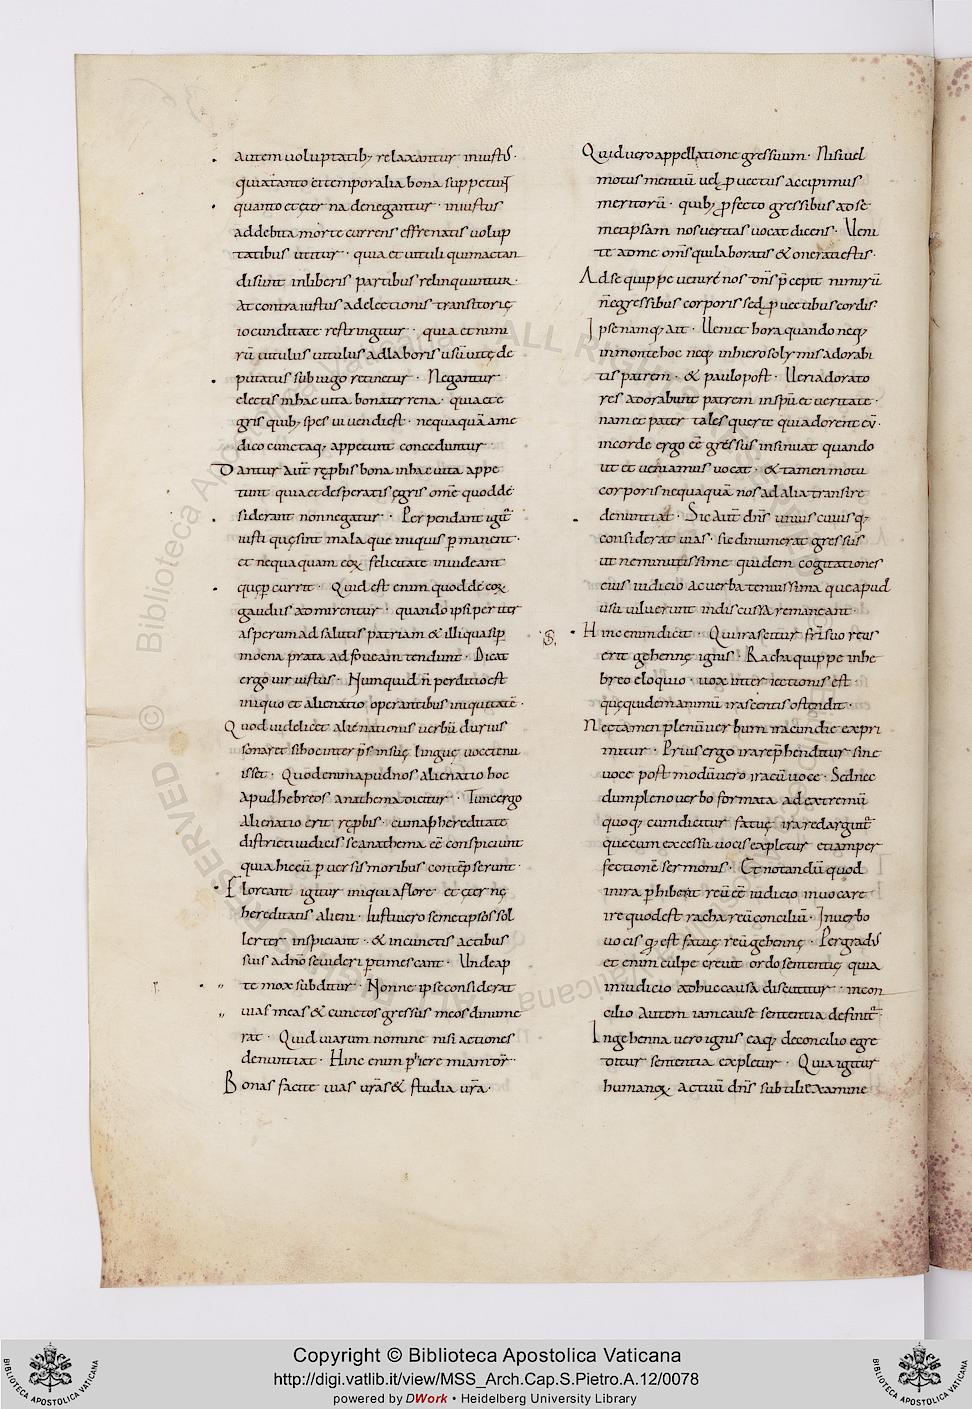 autem uoluptatib; relaxantur iniusti·
quia tanto ei temporalia bona suppetunt
quanto et ęterna denegantur· iniustus
ad debita morte currens effrenatis uolup
tatibus utitur· quia et uituli qui mactan
di sunt in liberis partibus relinquuntur·
At contra iustus a delectionis transitorię
iocunditate restringitur· quia et nimi
rū uitulus uitulus ad laboris usū uitę de
putatus sub iugo retinetur· Negantur
electis in hac uita bona terrena· quia et ę
gris quib; spes uiuendi est· nequaquā a me
dico cuncta q; appetunt conceduntur·
Dantur aut rep̄bis bona in hac uita appe
tunt quia et desperatis ęgris om̄e quod de
siderant non negatur· Perpendant igit̄
iusti quę sint mala que iniquis p̄manent·
et nequaquam eoꝝ felicitate inuideant
quę p̄currit· Quid est enim quod de eoꝝ
gaudiis admirentur· quando ipsi per iter
asperum ad salutis patriam & illi quasi p̄
moena prata ad foueam tendunt· Dicat
ergo uir iustus· Numquid n̄ perditio est
iniquo et alienatio operantibus iniquitatē·
Quod uidelicet alienationis uerbū durius
sonaret si hoc interp̄s in suę linguę uoce tenu
isset· Quod enim apud nos alienatio hoc
apud hebreos anathema dicitur· Tunc ergo
alienatio erit rep̄bis· cum ab hereditate
districti iudicis se anathema eē conspiciunt
quia hic eū p̄uersis moribus contēpserunt·
Floreant igitur iniqui a flore ętęrnę
hereditatis alieni· Iusti uero semetipsos sol
lerter inspiciant· & in cunctis actibus
suis ad n̄o se uideri ptimescant· Unde ap
te mox subditur· Nonne ipse considerat
uias meas & cunctos gressus meos dinume
rat· Quid uiarum nomine nisi actiones
denuntiat· Hinc enim p̄ hieremiam dr̄·
Bonas facite uias uras & studia ura·
Quid uero appellatione gressuum· Nisi uel
motus mentiū uel p̄uectus accipimus
meritorū· quib; p̄fecto gressibus ad se
metipsam nos ueritas uocat dicens· Ueni
te ad me om̄s qui laboratis & onerati estis·
Ad se quippe uenire nos dn̄s p̄cepit nimirū
n̄ gressibus corporis sed p̄uectibus cordis·
Ipse namq; ait· Ueniet hora quando neq;
in monte hoc neq; in hierosolymis adorabi
tis patrem· & paulo post· Ueri adorato
res adorabunt patrem in spū et ueritate·
nam et pater tales querit qui adorent eū·
in corde ergo eē gressus insinuat quando
ut et ueniamus uocat· & tamen motu
corporis nequaquā nos ad alia transire
denuntiat· Sic aut dn̄s unius cuiusq;
considerat uias· sic dinumerat gressus
ut ne minutissime quidem cogitationes
eius iudicio ac uerba tenuissima que apud
usū uiluerunt indiscussa remaneant·
Hinc enim dicit· Qui irascitur fr̄i suo reus
erit gehennę ignis· Racha quippe in he
breo eloquio· uox interiectionis est·
quę quidem animū irascentis ostendit·
Nec tamen plenū uerbum iracundie expri
mitur· Prius ergo ira rep̄henditur sine
uoce post modū uero ira cū uoce· Sed nec
dum pleno uerbo formata ad extremū
quoq; cum dicitur fatuę ira redarguit̄
que cum excessū uocis expletur etiam per
fectionē sermonis· Et notandū quod
in ira p̄hibent reū eē iudicio in uoca re
ire quod est racha reū conciliū· In uerbo
uocis q; est fatuę reū gehennę· Per gradus
et enim culpe creuit ordo sententię quia
in iudicio adhuc causa discutitur· in con
cilio autem iam cause sententia definit̄·
In gehenna uero ignis ea q; de concilio egre
ditur sententia expletur· Quia igitur
humanoꝝ actuū dn̄s subtili examine
Copyright © Biblioteca Apostolica Vaticana
http://digi.vatlib.it/view/MSS_Arch.Cap.S.Pietro.A.12/0078
powered by DWork • Heidelberg University Library